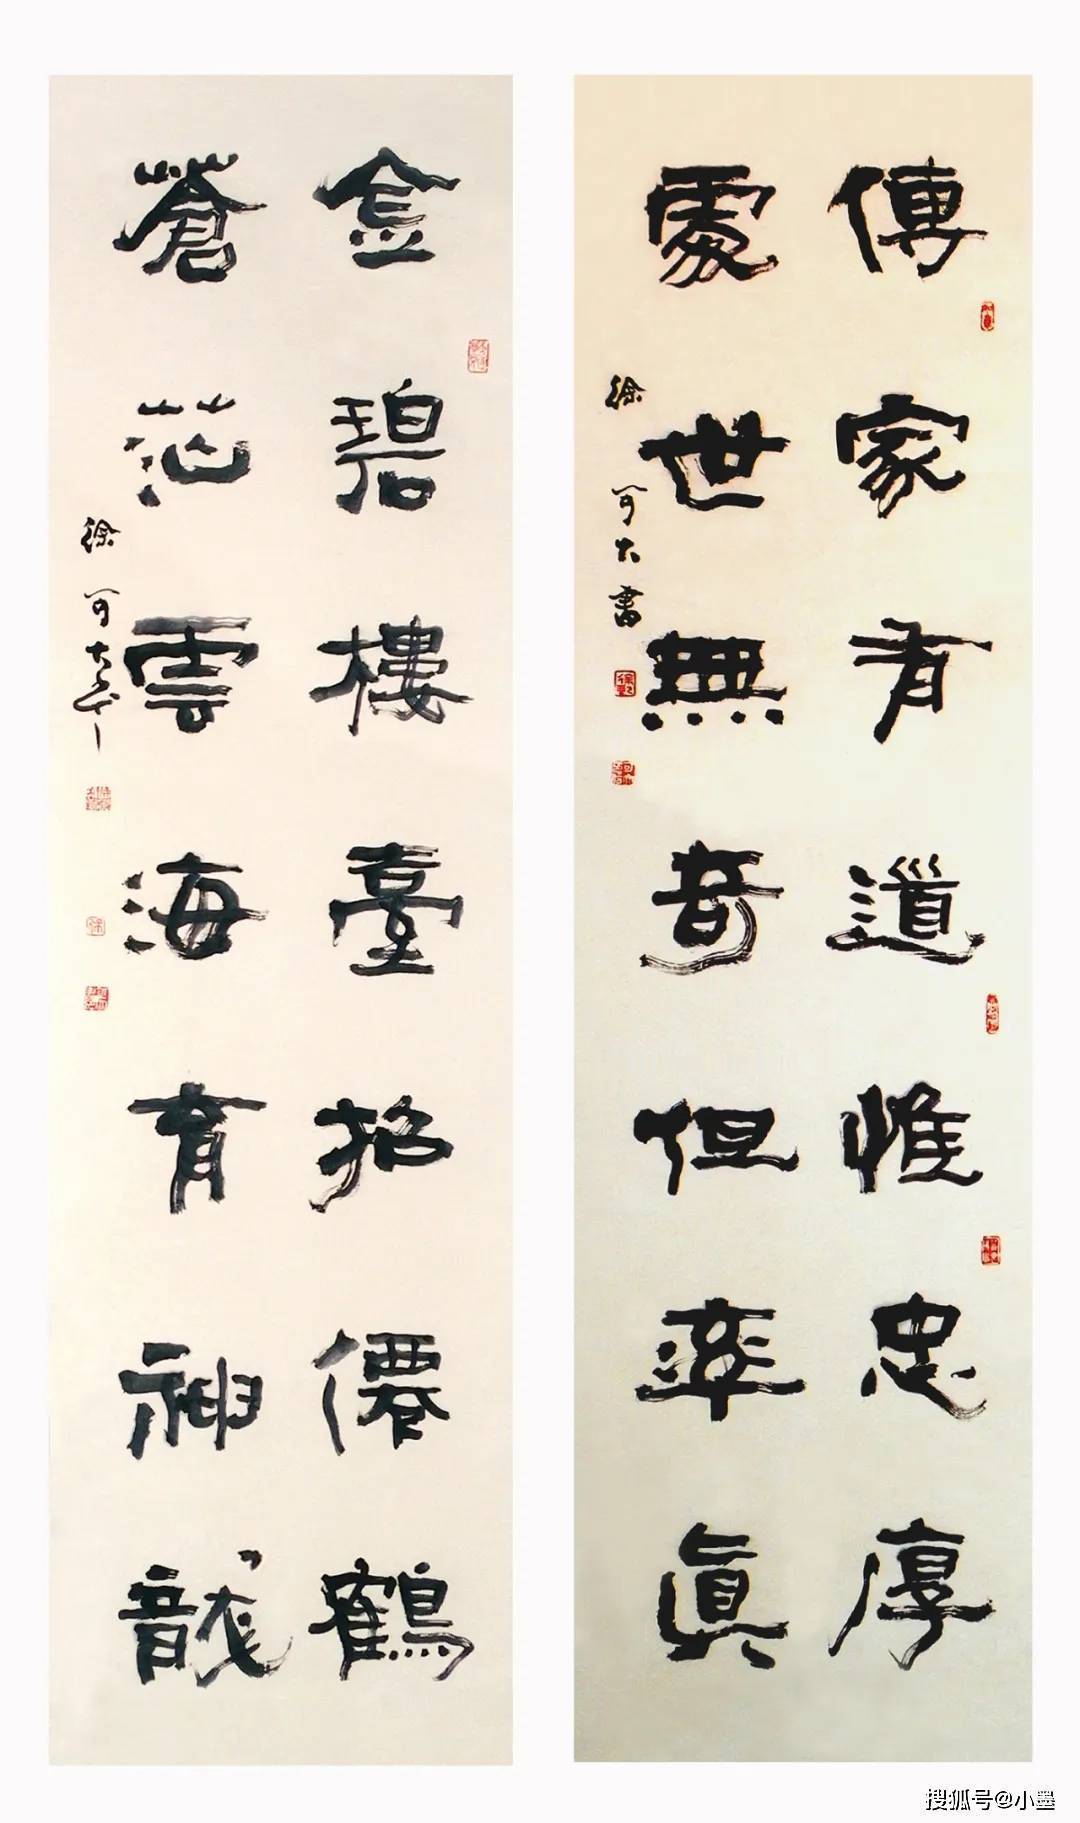 傳家有道惟忠厚
處世無奇但率真
徐可大書
金碧樓臺招僊鶴
蒼茫雲海育神龍
徐可大
搜狐号@小墨